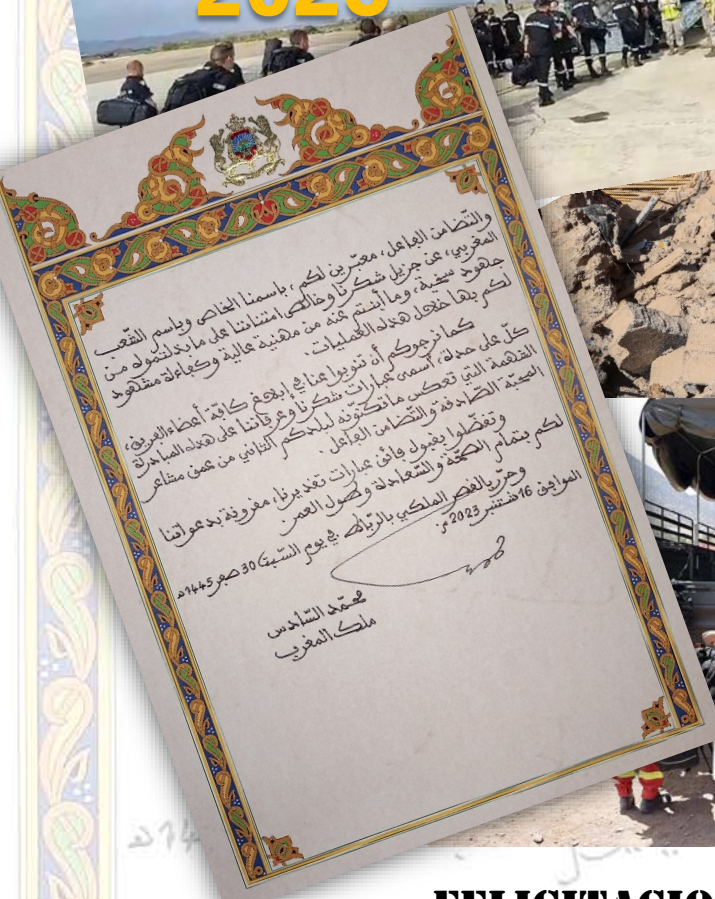 2023
والتّضامن الفاعل، معبّرين لكم، باسمنا الخاص وباسم الشّعب
المغربي، عن جزيل شكرنا وخالص امتناننا على ما بذلتموه من
جهود سخية، وما أبنتم عنه من مهنية عالية وكفاءة مشهود
لكم بها خلال هذه العمليات.
كما نرجوكم أن تنوبوا عنا في إبلاغ كافة أعضاء الفريق،
كلّ على حدة، أسمى عبارات شكرنا وعرفاننا على هذه المبادرة
الشهمة التي تعكس ما تكنّونه لبلدكم الثاني من عميق مشاعر
المحبّة الصّادقة والتّضامن الفاعل.
وتفضّلوا بقبول فائق عبارات تقديرنا، مقرونة بدعواتنا
لكم بتمام الصّحّة والسّعادة وطول العمر.
وحرّر بالقصر الملكي بالرّباط في يوم السّبت 30 صفر 1445هـ
الموافق 16 شتنبر 2023م.
محمّد السّادس
ملك المغرب
FELICITACIO